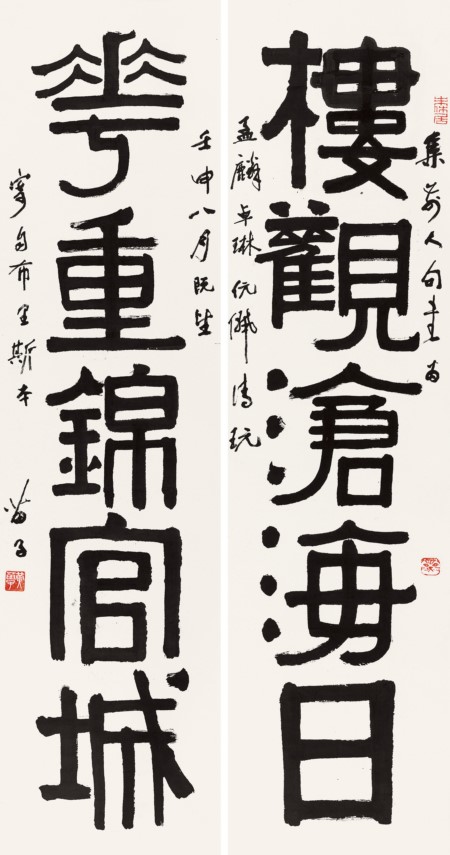 集前人句書為
樓觀滄海日
孟麟卓琳伉儷清玩
壬申八月既望
華重錦官城
寫自布里斯本
苗子